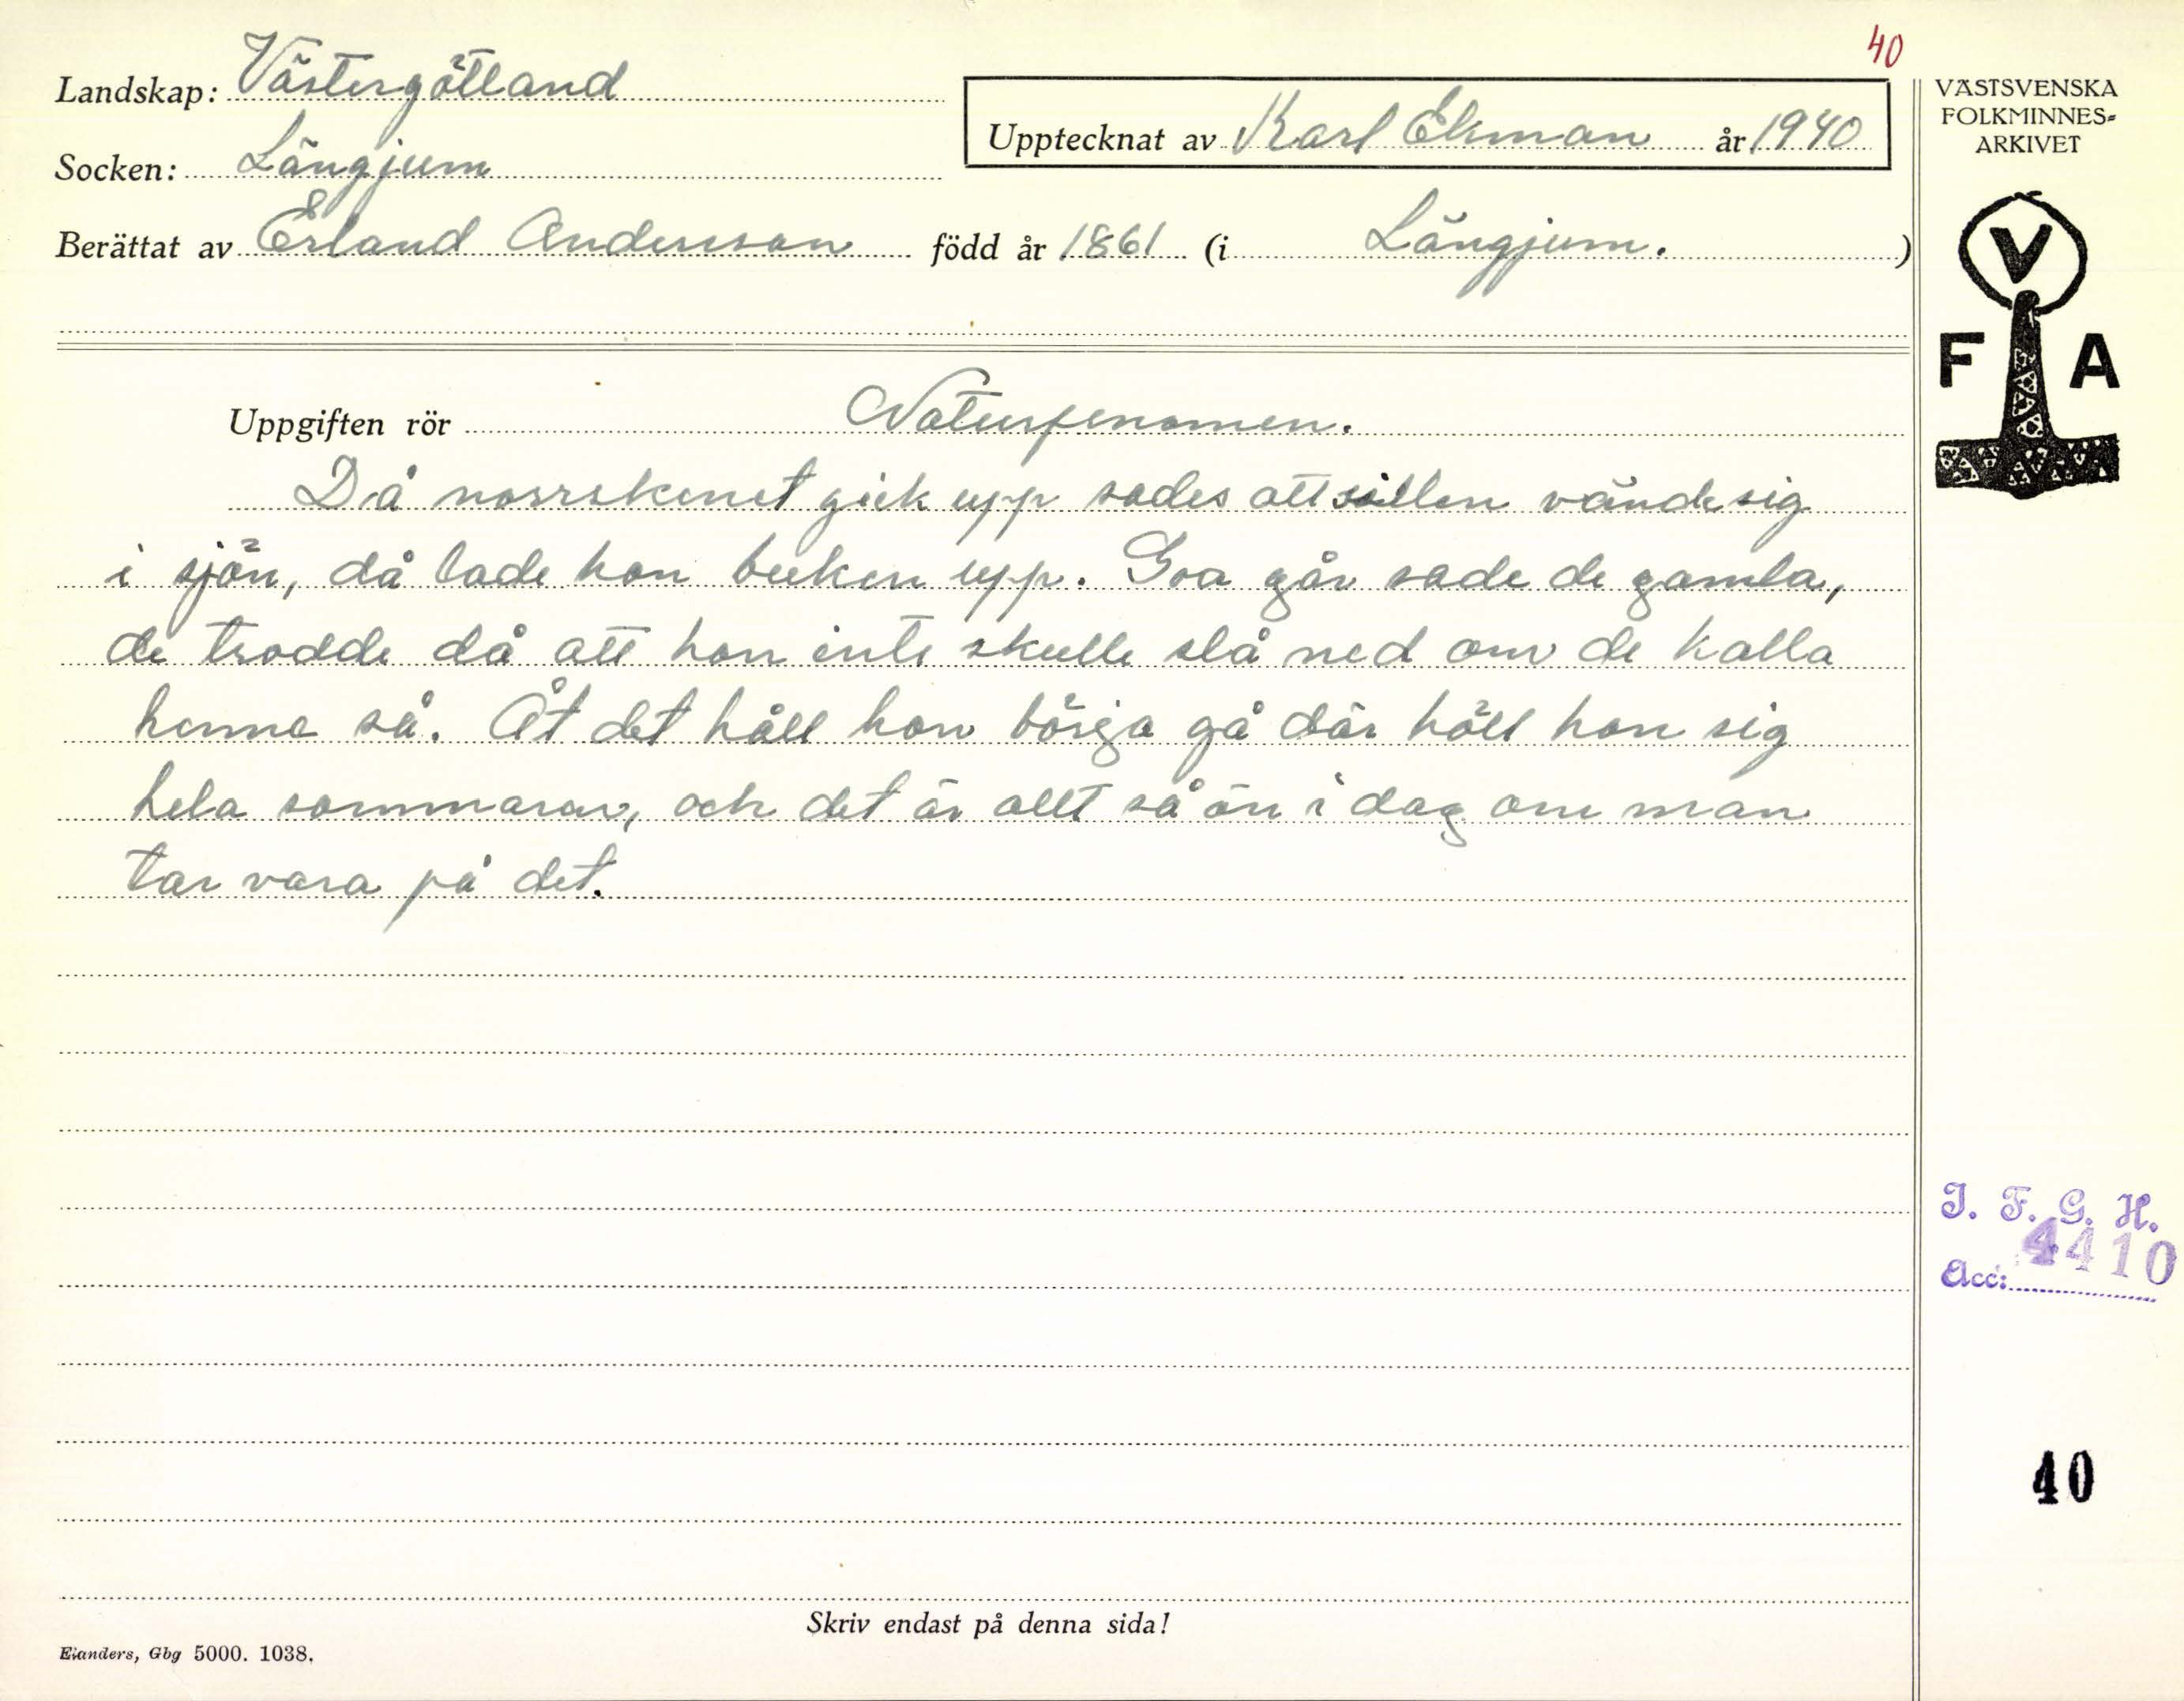 40
Landskap: Västergötland
Upptecknat av Karl Ekman år 1940
Socken: Längjum
Berättat av Erland Andersson född år 1861 (i Längjum. )
Uppgiften rör Naturfenomen.
Då norrskenet gick upp sades att sillen vände sig
i sjön, då lade hon buken upp. Goa går sade de gamla,
de trodde då att hon inte skulle slå ned om de kalla
henne så. Åt det håll hon börja gå där höll hon sig
hela sommaren, och det är allt så än i dag om man
tar vara på det.
Skriv endast på denna sida!
Elanders, Gbg 5000. 1038.
VÄSTSVENSKA
FOLKMINNES=
ARKIVET
V
F A
I. F. G. H.
Acc: 4410
40